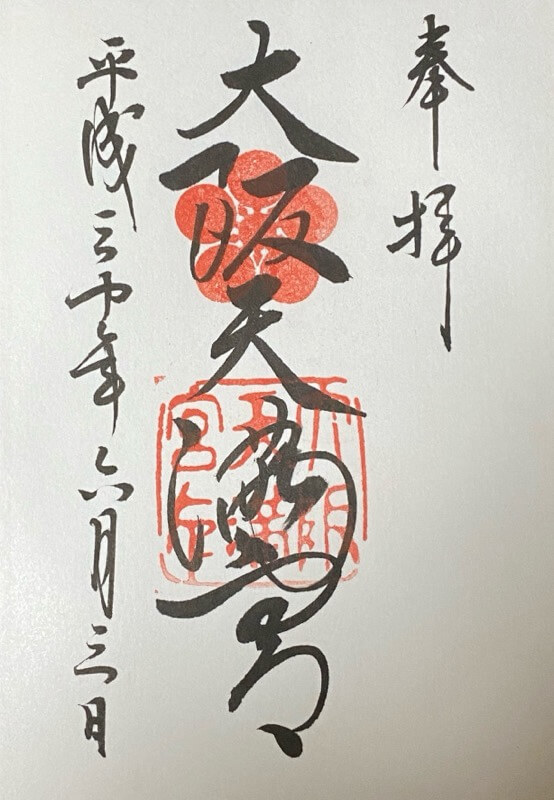 奉拝
大阪天満宮
平成三十年六月三日